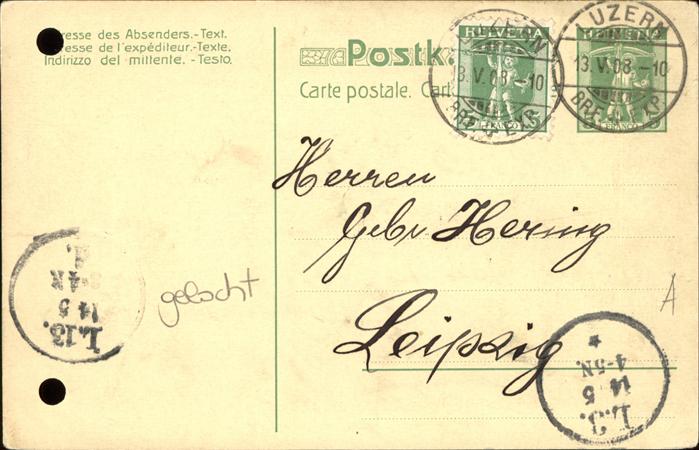 resse des Absenders.-Text.
esse de l'expéditeur.-Texte.
Indirizzo del mittente. -Testo.
Postk
Carte postale. Cart
HELVETIA
FRANCO
5
LUZERN
13.V.08.-10
BRF. EXP.
UZERN
13.V.08.-10
BRF. EXP.
FRANCO
Herren
Gebr Hering
Leipzig
gelocht
A
L.13.
14 5
3-4N
d.
L.3.
14 5
4-5N.
*